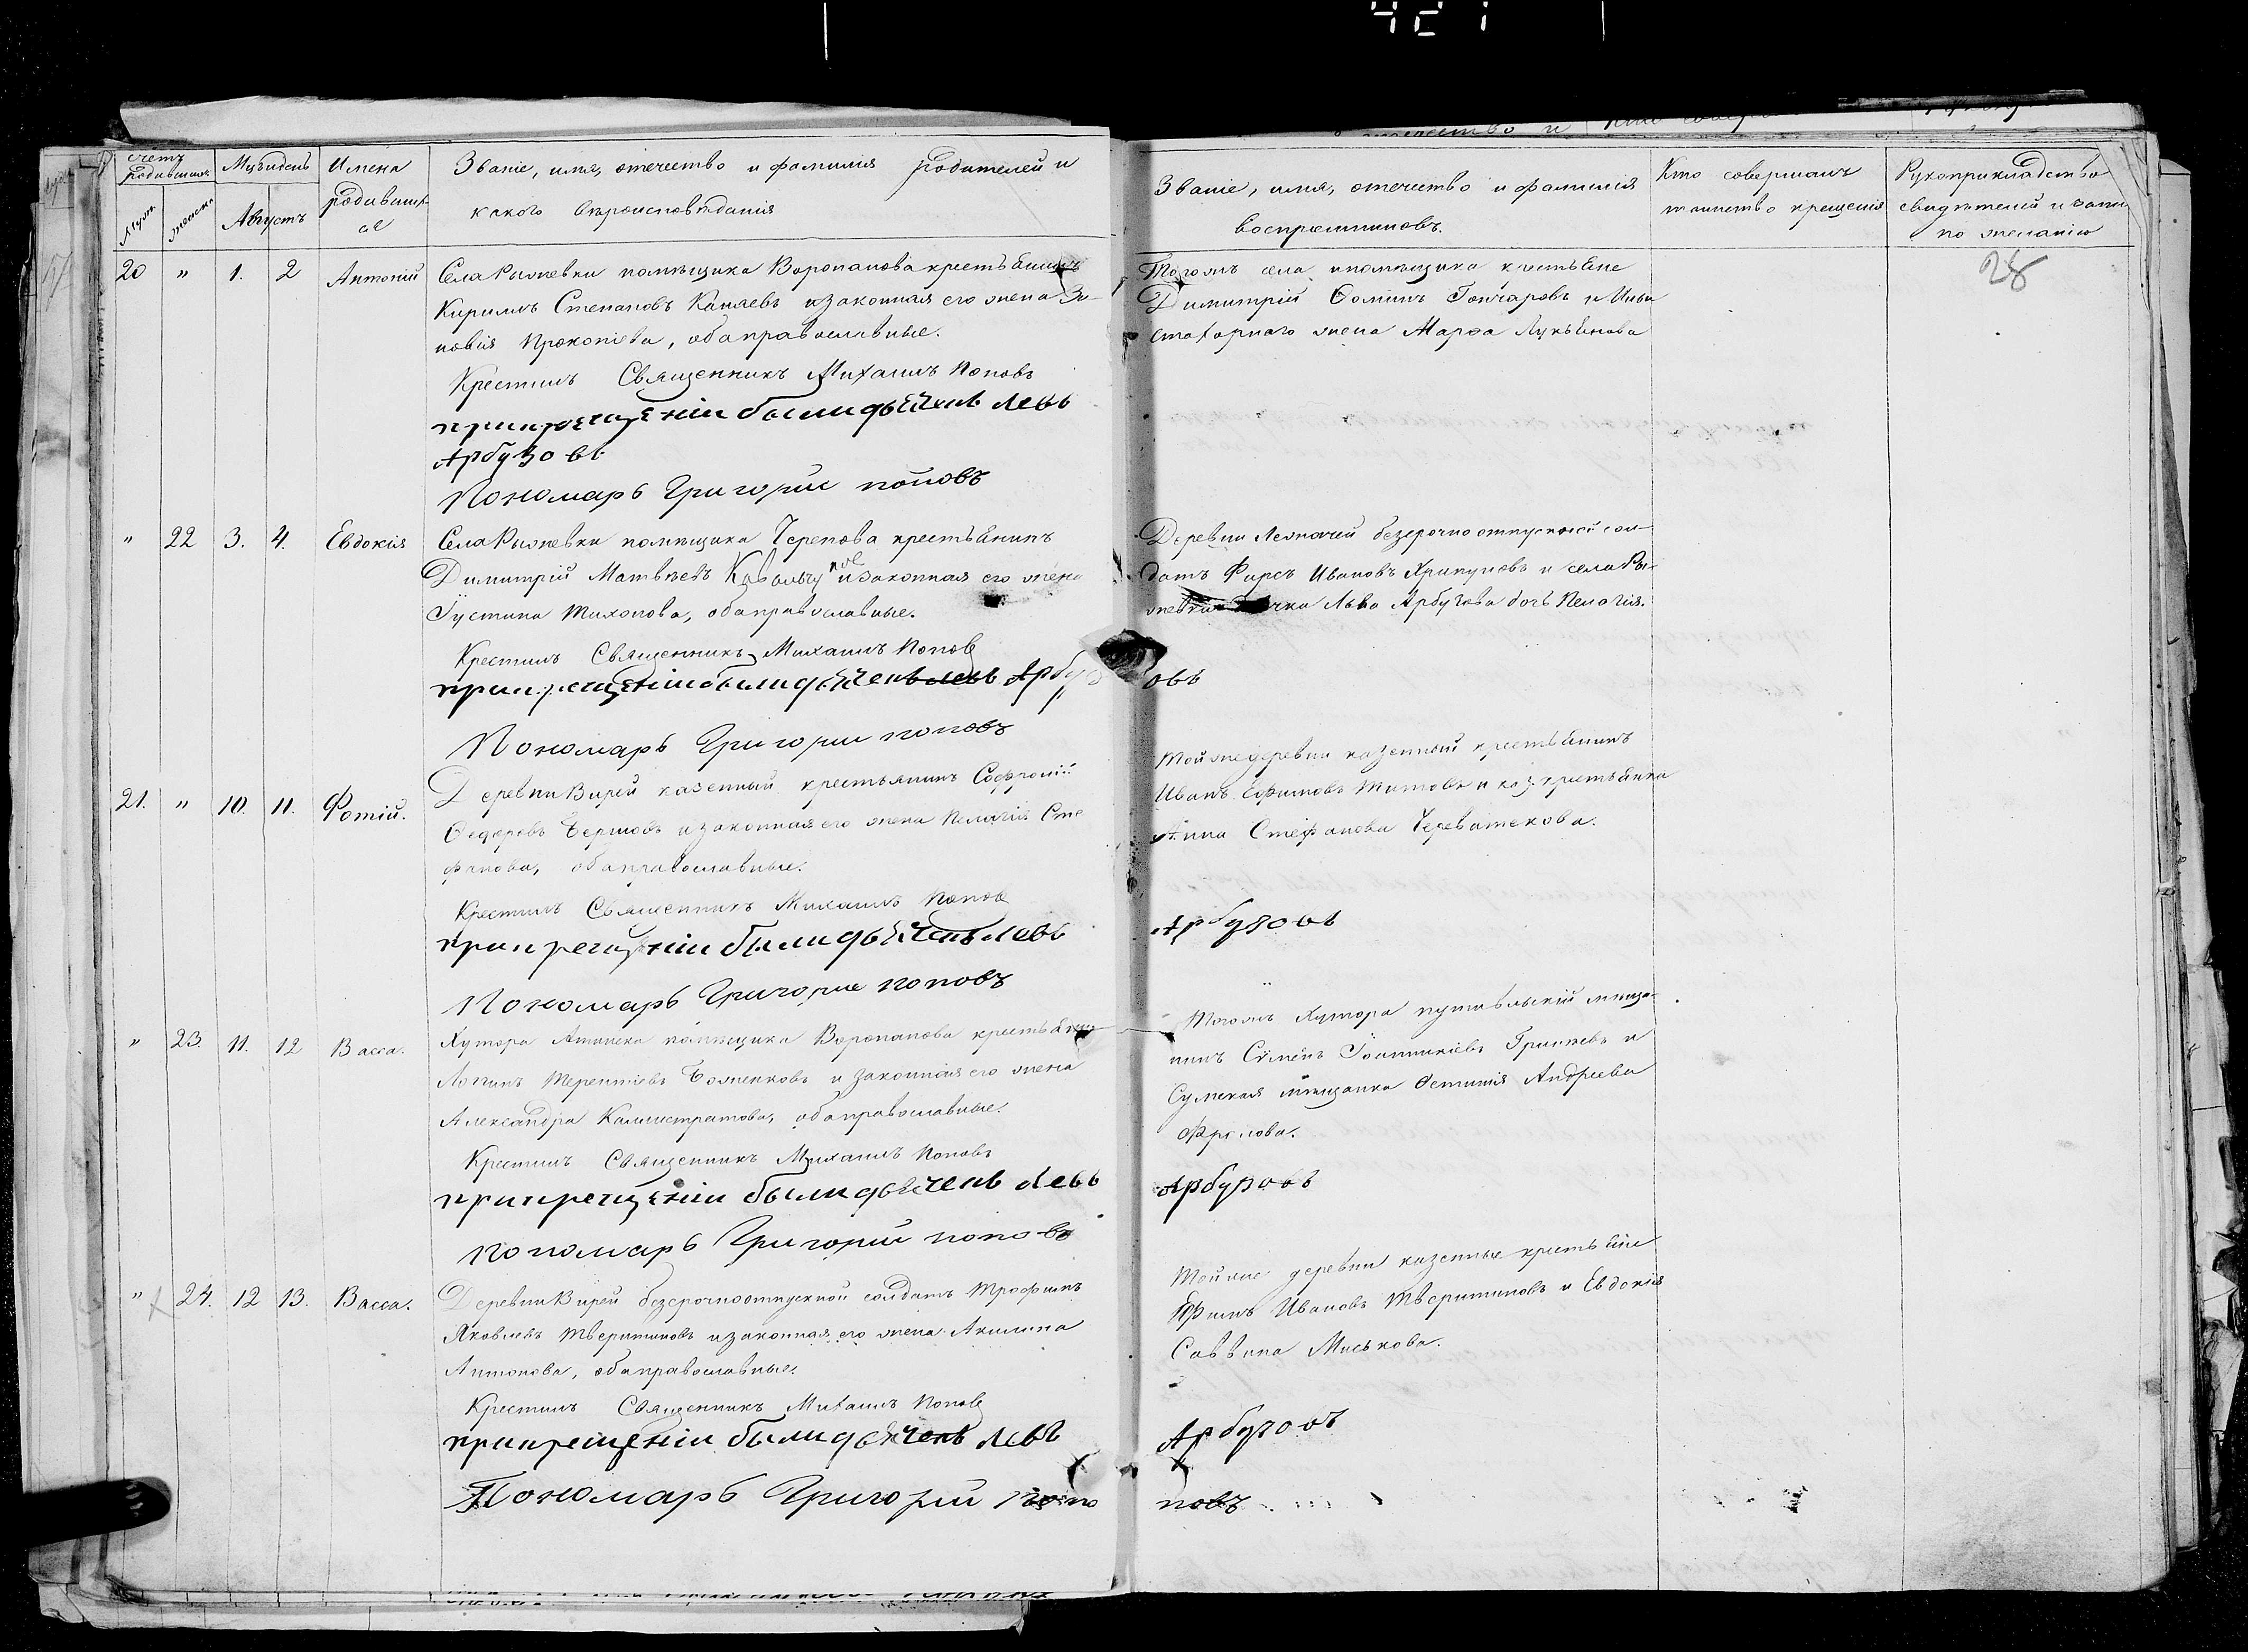 421
Счетъ родившихся
Муж.
женска
Мц. и день
Августъ
Имена
родивших
ся
Званіе, имя, отечество и фамилія родителей и
какого вѣроисповѣданія
Званіе, имя, отечество и фамилія
воспріемниковъ.
Кто совершалъ
таинство крещенія
Рукоприкладство
свидѣтелей
по желанію
28
20 " 1. 2 Антоній
Села Рыжевки помѣщика Воропанова крестьянинъ
Кирилъ Степановъ Каняевъ и законная его жена Зи-
новія Прокопіева, оба православные.
Тогожъ села и помѣщика крестьяне
Димитрій Ѳоминъ Гончаровъ и
жена Марѳа Лукьянова
Крестилъ Священникъ Михаилъ Поповъ
при крещеніи были дьячекъ Левъ
Арбузовъ
Пономарь Григорій поповъ
" 22 3. 4. Евдокія
Села Рыжевки помѣщика Черепова крестьянинъ
Димитрій Матвѣевъ и законная его жена
Іустина Тихонова, оба православные.
Деревни безсрочно отпускной сол-
датъ Фирсъ Ивановъ Хрипуновъ и села Ры-
жевки Льва Арбузова дочь Пелагія.
Крестилъ Священникъ Михаилъ Поповъ
при крещеніи были дьячекъ Левъ Арбузовъ
Пономарь Григорій поповъ
21. " 10. 11. Фотій.
Деревни Вирей казенный крестьянинъ Софроній
Ѳедоровъ и законная его жена Пелагія Сте
фанова, оба православные.
Той же деревни казенный крестьянинъ
Иванъ Ефимовъ Титовъ и каз. крестьянка
Анна Стефанова Череватенкова.
Крестилъ Священникъ Михаилъ Поповъ
при крещеніи были дьячекъ Левъ Арбузовъ
Пономарь Григорій поповъ
" 23. 11. 12 Васса.
Хутора помѣщика Воропанова крестьянинъ
Логинъ Терентіевъ Боженковъ и законная его жена
Александра Калистратова, оба православные.
Тогожъ Хутора путивльскій мѣща-
нинъ Сѵмеонъ Іоанникіевъ и
Сумская мѣщанка Андреева
Фролова.
Крестилъ Священникъ Михаилъ Поповъ
при крещеніи были дьячекъ Левъ Арбузовъ
пономарь Григорій поповъ
" 24. 12 13. Васса.
Деревни Вирей безсрочноотпускной солдатъ Трофимъ
Яковлевъ Тверитиновъ и законная его жена Акилина
Антонова, оба православные.
Той же деревни казенные крестьяне
Ефимъ Ивановъ Тверитиновъ и Евдокія
Саввина Миськова.
Крестилъ Священникъ Михаилъ Поповъ
при крещеніи были дьячекъ Левъ Арбузовъ
Пономарь Григорій поповъ